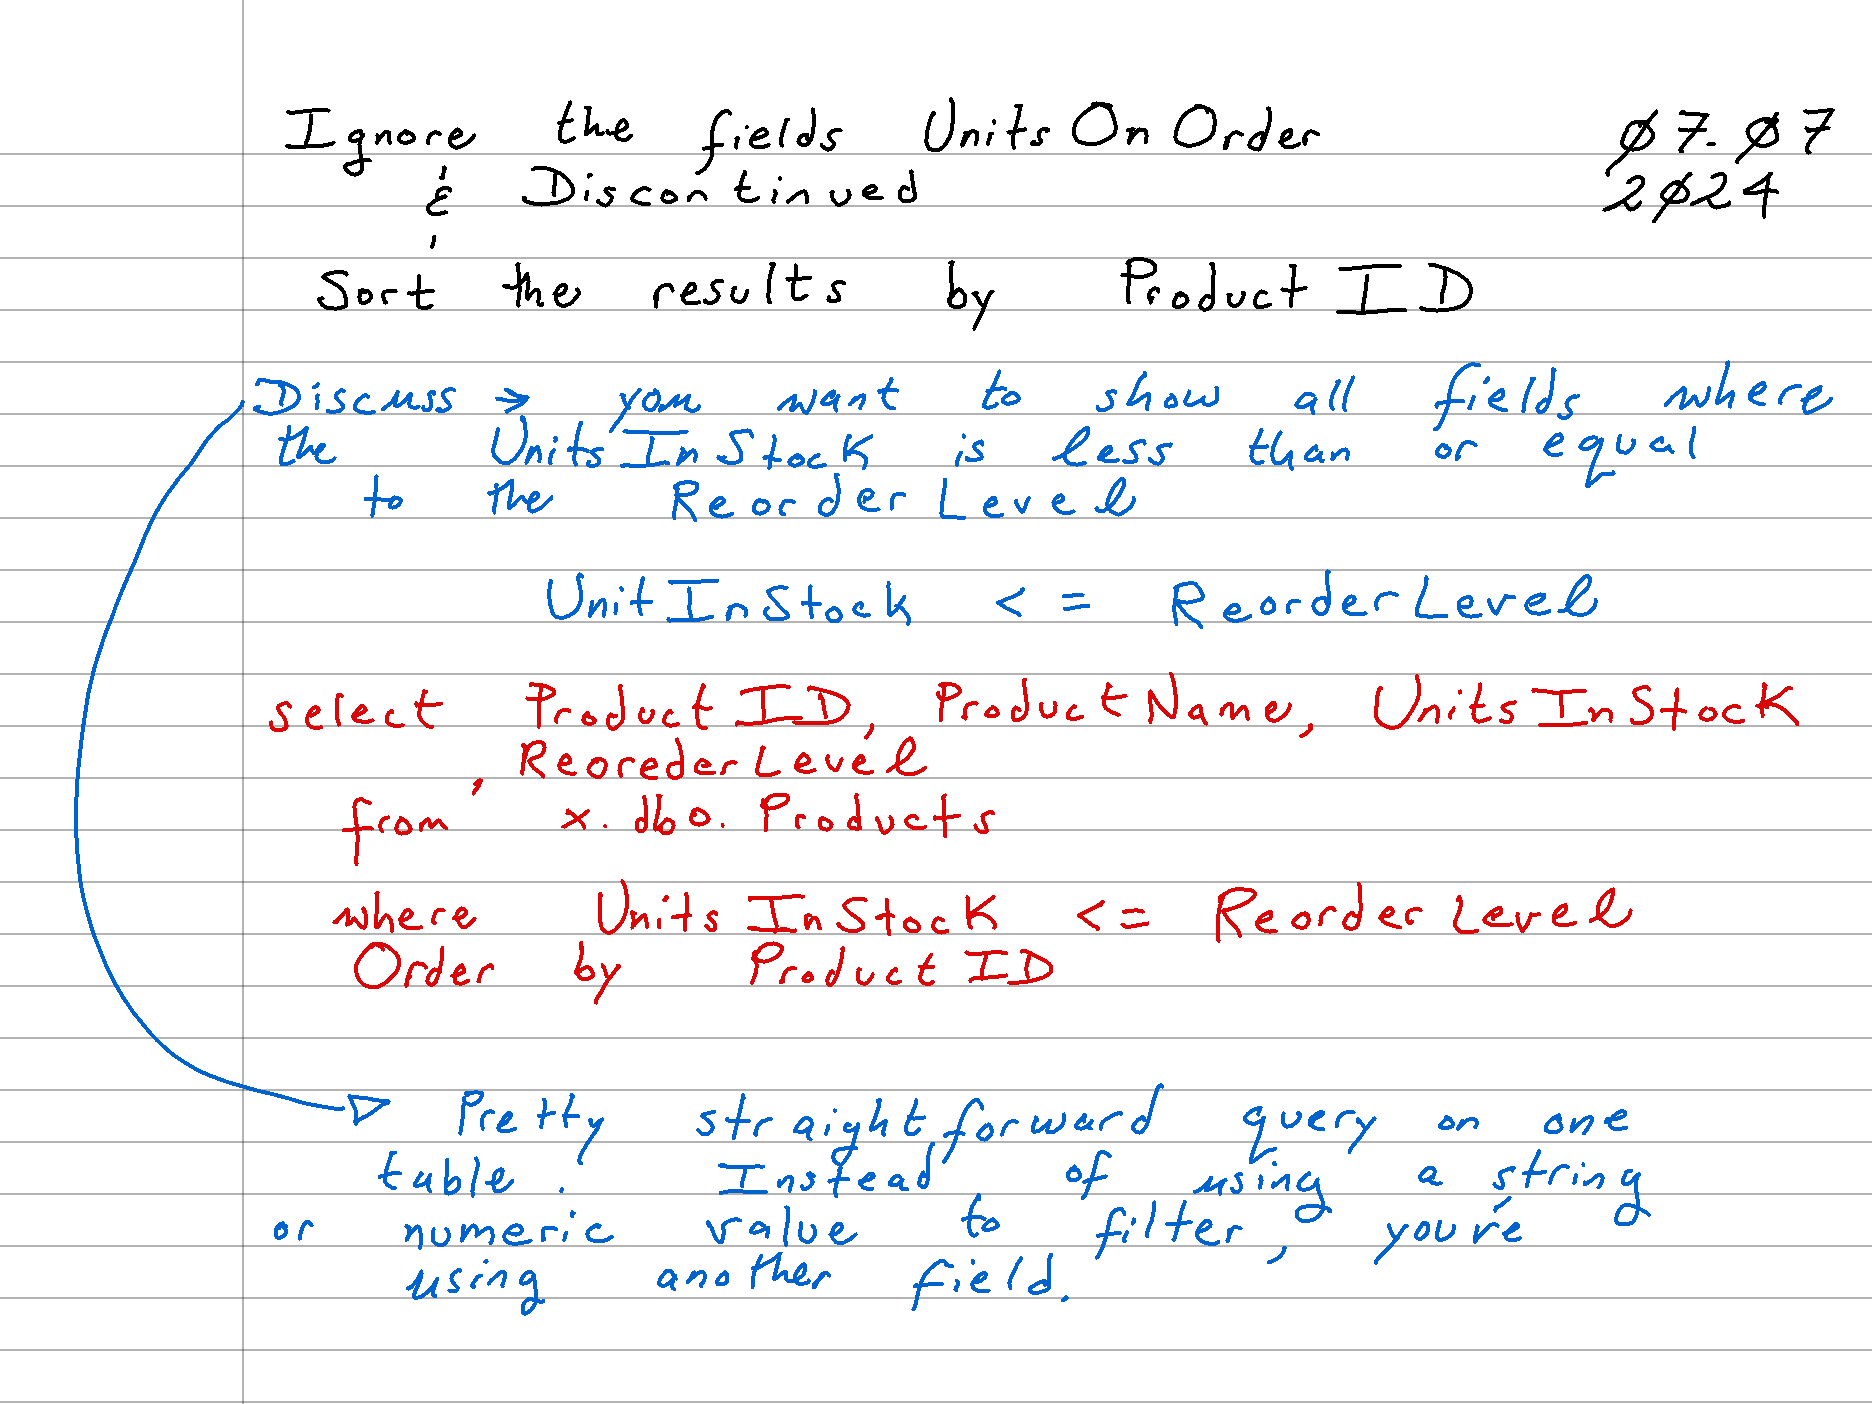 Ignore the fields UnitsOnOrder 07.07
& Discontinued 2024
Sort the results by ProductID
Discuss → you want to show all fields where
the UnitsInStock is less than or equal
to the ReorderLevel
UnitInStock <= ReorderLevel
select ProductID, ProductName, UnitsInStock
, ReorederLevel
from x.dbo.Products
where UnitsInStock <= ReorderLevel
Order by ProductID
Pretty straightforward query on one
table. Instead of using a string
or numeric value to filter, you're
using another field.